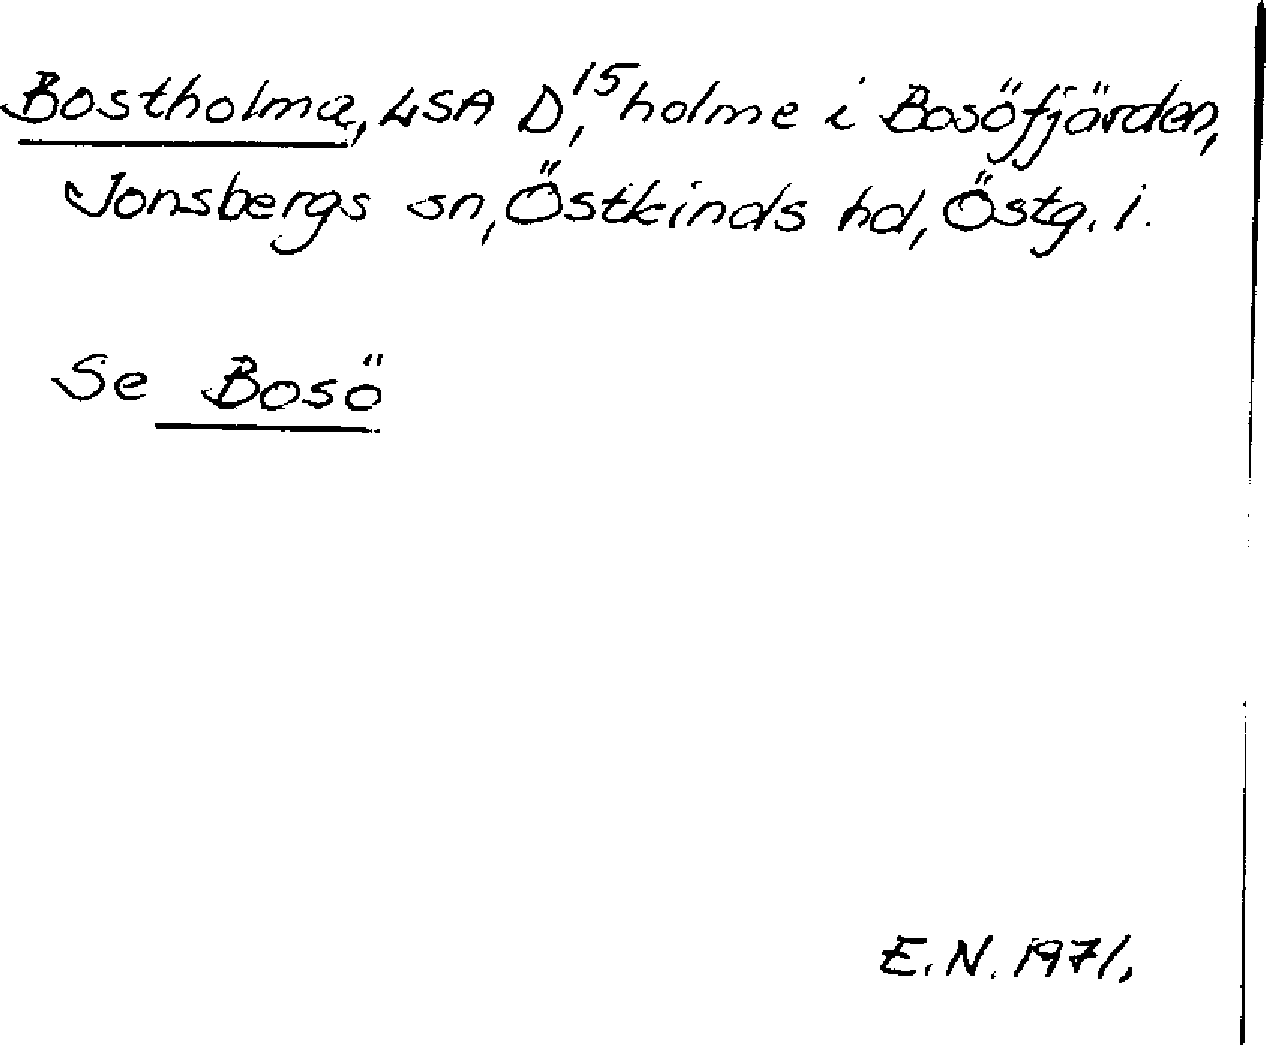 Bostholma, LSA D¹⁵, holme i Bosöfjärden,
Jonsbergs sn, Östkinds hd, Östg. l.
Se Bosö
E.N. 1971.